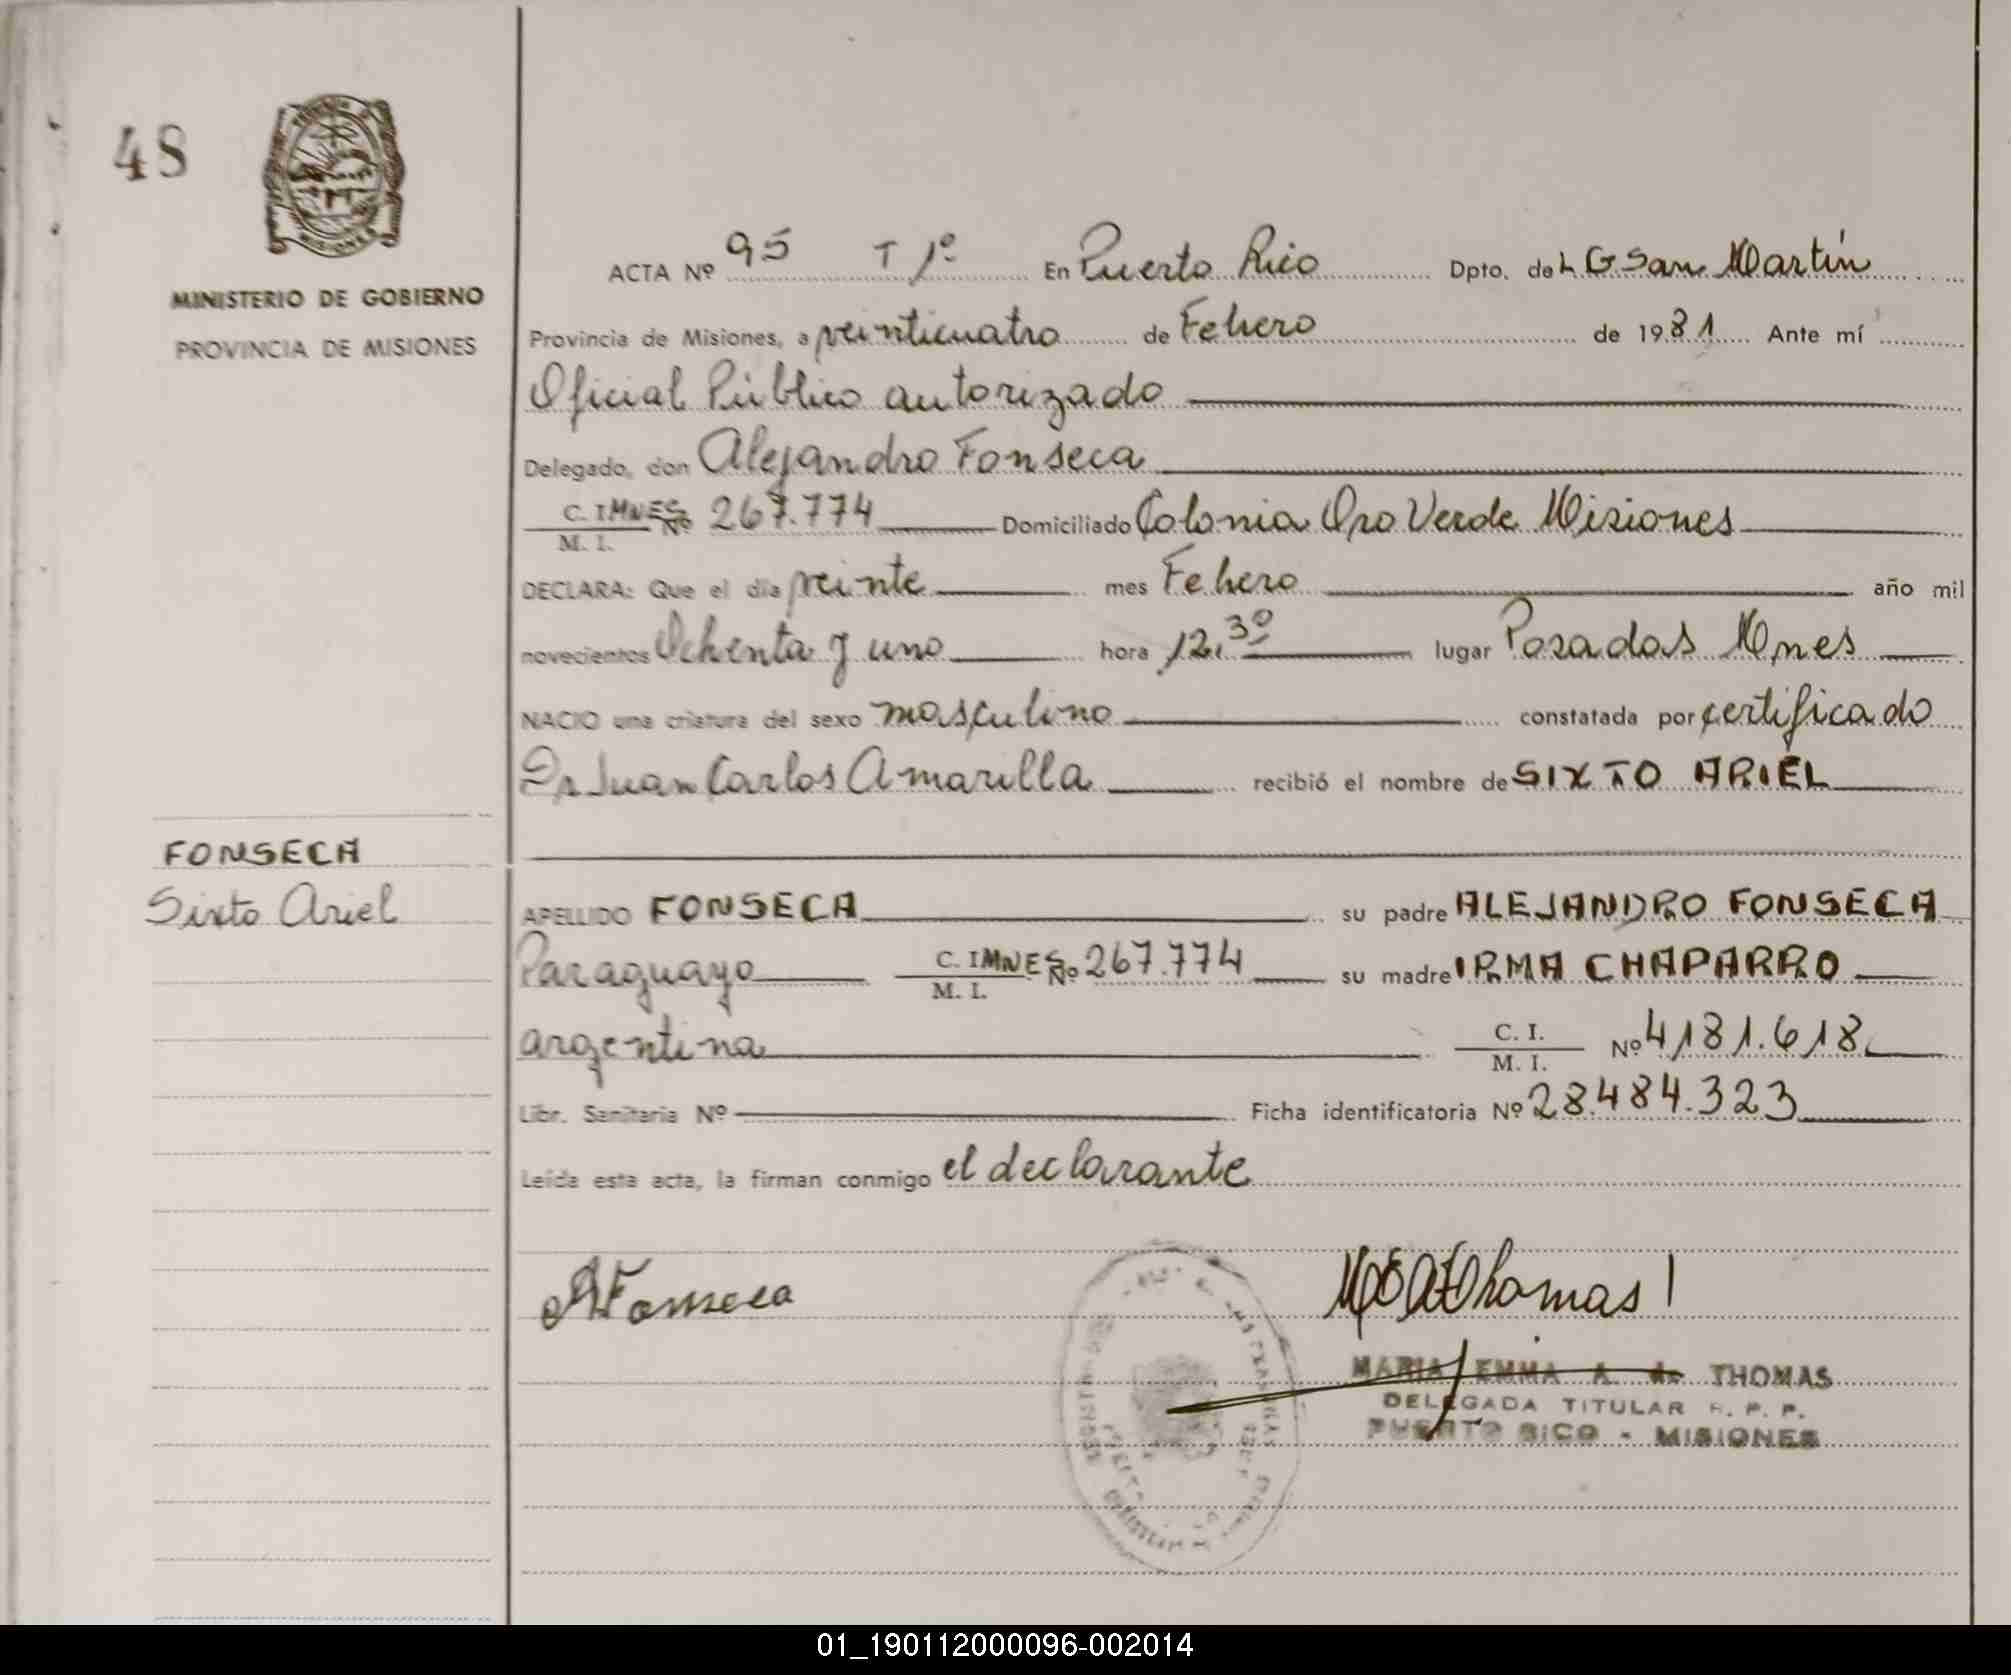 48
MISIONES
MINISTERIO DE GOBIERNO
PROVINCIA DE MISIONES
ACTA Nº 95 T 1º En Puerto Rico Dpto. de L G. San Martín
Provincia de Misiones, a veinticuatro de Febrero de 1981 Ante mí
Oficial Público autorizado
Delegado, don Alejandro Fonseca
C. I MNES Nº 267.774 Domiciliado Colonia Oro Verde Misiones
M. I.
DECLARA: Que el día veinte mes Febrero año mil
novecientos Ochenta y uno hora 12,30 lugar Posadas Mnes
NACIO una criatura del sexo masculino constatada por certificado
Dr Juan Carlos Amarilla recibió el nombre de SIXTO ARIEL
FONSECA
Sixto Ariel
APELLIDO FONSECA su padre ALEJANDRO FONSECA
Paraguayo C. I MNES Nº 267.774 su madre IRMA CHAPARRO
M. I.
argentina C. I. Nº 4181.618
M. I.
Libr. Sanitaria Nº Ficha identificatoria Nº 28.484.323
Leída esta acta, la firman conmigo el declarante
AFonseca
Thomas
MARIA EMMA A. de THOMAS
DELEGADA TITULAR R. P. P.
PUERTO RICO - MISIONES
01_190112000096-002014